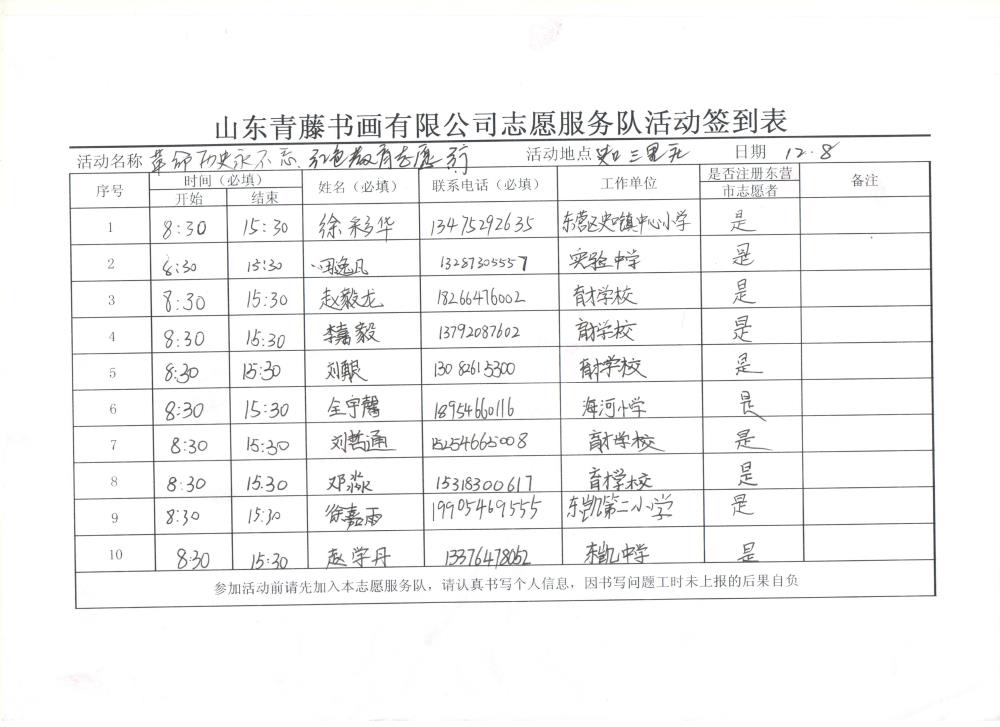 山东青藤书画有限公司志愿服务队活动签到表
活动名称 革命历史永不忘 红色教育志愿行 活动地点 史口三里庄 日期 12.8
序号 时间（必填） 姓名（必填） 联系电话（必填） 工作单位 是否注册东营市志愿者 备注
开始 结束
1 8:30 15:30 徐彩华 13475292635 东营区史口镇中心小学 是
2 8:30 15:30 田逸凡 13287305557 实验中学 是
3 8:30 15:30 赵毅龙 18266476002 育才学校 是
4 8:30 15:30 李嘉毅 13792087602 育才学校 是
5 8:30 15:30 刘 13082615300 育才学校 是
6 8:30 15:30 全宇馨 18954660116 海河小学 是
7 8:30 15:30 刘哲通 15254665008 育才学校 是
8 8:30 15.30 邓淼 15318300617 育才学校 是
9 8:30 15:30 徐嘉雨 19905469555 东凯第二小学 是
10 8:30 15:30 赵学丹 13376478052 东凯中学 是
参加活动前请先加入本志愿服务队，请认真书写个人信息，因书写问题工时未上报的后果自负